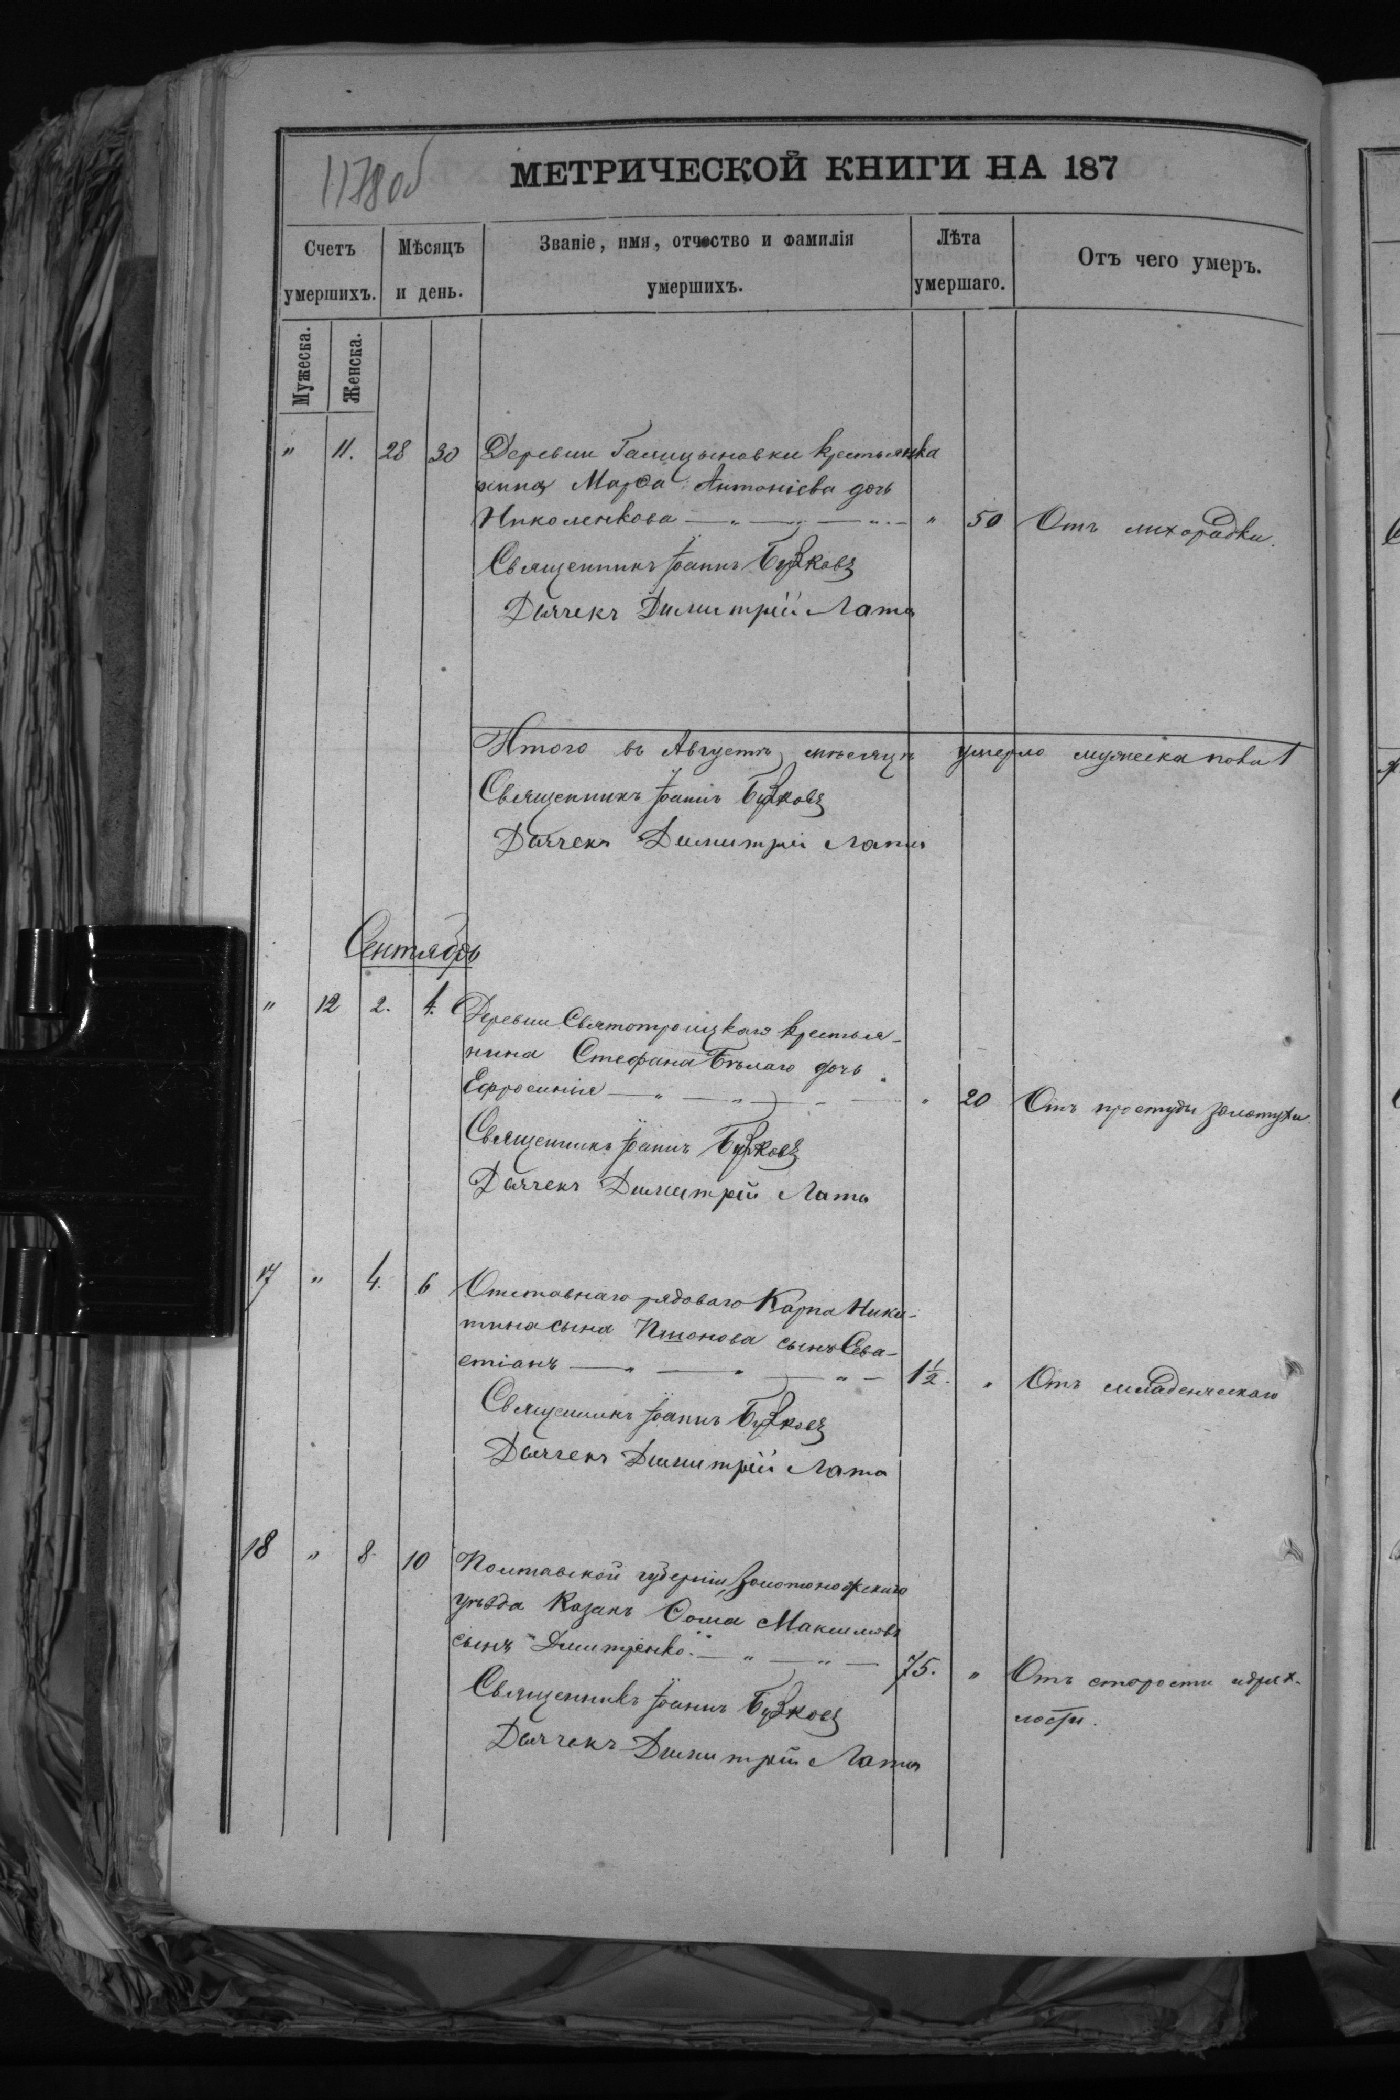 1178об
МЕТРИЧЕСКОЙ КНИГИ НА 187
Счетъ умершихъ.
Мѣсяцъ и день.
Званіе, имя, отчество и фамилія умершихъ.
Лѣта умершаго.
Отъ чего умеръ.
Мужеска.
Женска.
" 11. 28 30 Деревни Галицыновки крестьянка
Марѳа Антоніева дочь
Николенкова " 50 Отъ лихорадки.
Священникъ Іоаннъ
Дьячекъ Димитрій Лата
Итого въ Августѣ мѣсяцѣ умерло мужеска пола 1
Священникъ Іоаннъ
Дьячекъ Димитрій Лата
Сентябрь
" 12 2. 4. Деревни Святотроицкаго крестья-
нина Стефана Бѣлаго дочь
Ефросинія " 20 Отъ простуды золотухи
Священникъ Іоаннъ
Дьячекъ Димитрій Лата
17 " 4. 6 Отставнаго рядоваго Карпа Ники-
тина сына сынъ Сева-
стіанъ 1½. " Отъ младенческаго
Священникъ Іоаннъ
Дьячекъ Димитрій Лата
18 " 8. 10 Полтавской губерніи, Золотоношскаго
уѣзда Козакъ Ѳома Максимовъ
сынъ Дмитренко. 75. " Отъ старости идрях-
лости.
Священникъ Іоаннъ
Дьячекъ Димитрій Лата